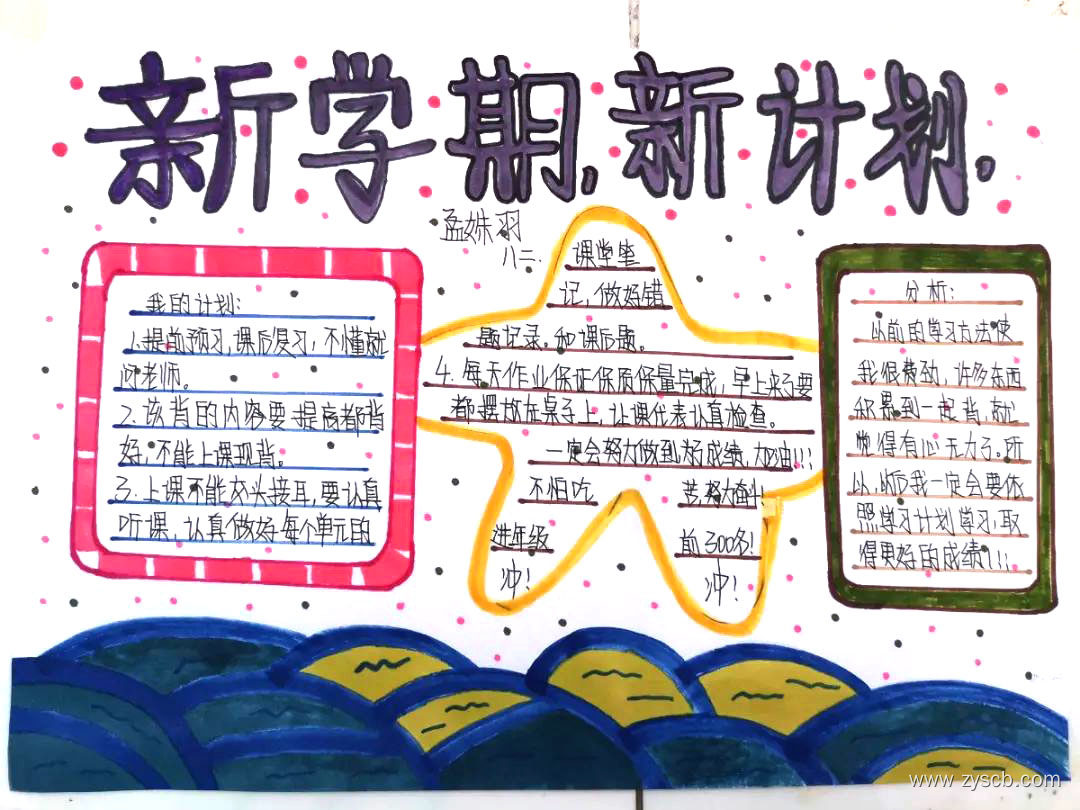 新学期,新计划.
孟姝羽
八二.
我的计划:
1.提前预习,课后复习,不懂就
问老师。
2.该背的内容要提高都背
好,不能上课现背。
3.上课不能交头接耳,要认真
听课,认真做好每个单元的
课堂笔
记,做好错
题记录。和课后题。
4.每天作业保证保质保量完成,早上来了要
都摆放在桌子上,让课代表认真检查。
一定会努力做到,为了成绩,加油!!!
不怕吃
苦,努力奋斗!
进年级
前300名!
冲!
冲!
分析:
以前的学习方法使
我很费劲,许多东西
积累到一起背,就
觉得有心无力了。所
以,以后我一定会要依
照学习计划学习,取
得更好的成绩!!!
www.zyscb.com